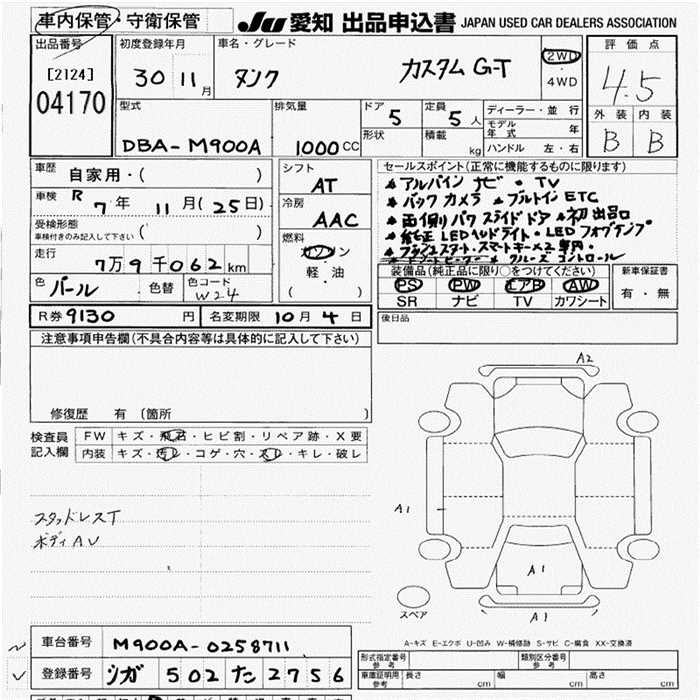 車内保管・守衛保管 JU 愛知 出品申込書 JAPAN USED CAR DEALERS ASSOCIATION
出品番号 初度登録年月 車名・グレード 評価点
[2124] 30 11月 タンク カスタムG-T 2WD・4WD 4.5
04170
型式 排気量 ドア 5 定員 5人 ディーラー・並行 外装 内装
DBA-M900A 1000CC 形状 積載 kg モデル年式 年 B B
ハンドル 左・右
車歴 自家用・( ) シフト AT セールスポイント(正常に機能するものに限ります)
車検 R 7年 11月(25日) 冷房 AAC *アルパインナビ・TV
*バックカメラ *ブルトインETC
受検形態 ( ) *両側パワスライドドア *初出品
車検付きのみ記入して下さい *純正LEDヘッドライト・LEDフォグランプ
走行 7万9千062km 燃料 ガソリン・軽・油 ( ) *プッシュスタート・スマートキー×2 専用・
クルーズコントロール
装備品(純正品に限り○をつけてください) 新車保証書
色 パール 色替 色コード W24 PS PW エアB AW 有・無
SR ナビ TV カワシート
R券 9130円 名変期限 10月4日 後日品
注意事項申告欄(不具合内容等は具体的に記入して下さい)
修復歴 有 (箇所 )
検査員記入欄 FW キズ・飛石・ヒビ割・リペア跡・X要
内装 キズ・汚レ・コゲ・穴・スレ・キレ・破レ
A2
A1
A1
A1
スタッドレスT
ボディAU
スペア
A-キズ E-エクボ U-凹み W-補修跡 S-サビ C-腐食 XX-交換済
車台番号 M900A-0258711
登録番号 シガ 502 た 2756
形式指定番号 参考 類別区分番号 参考
車庫証明用 参考 長さ cm 幅 cm 高さ cm